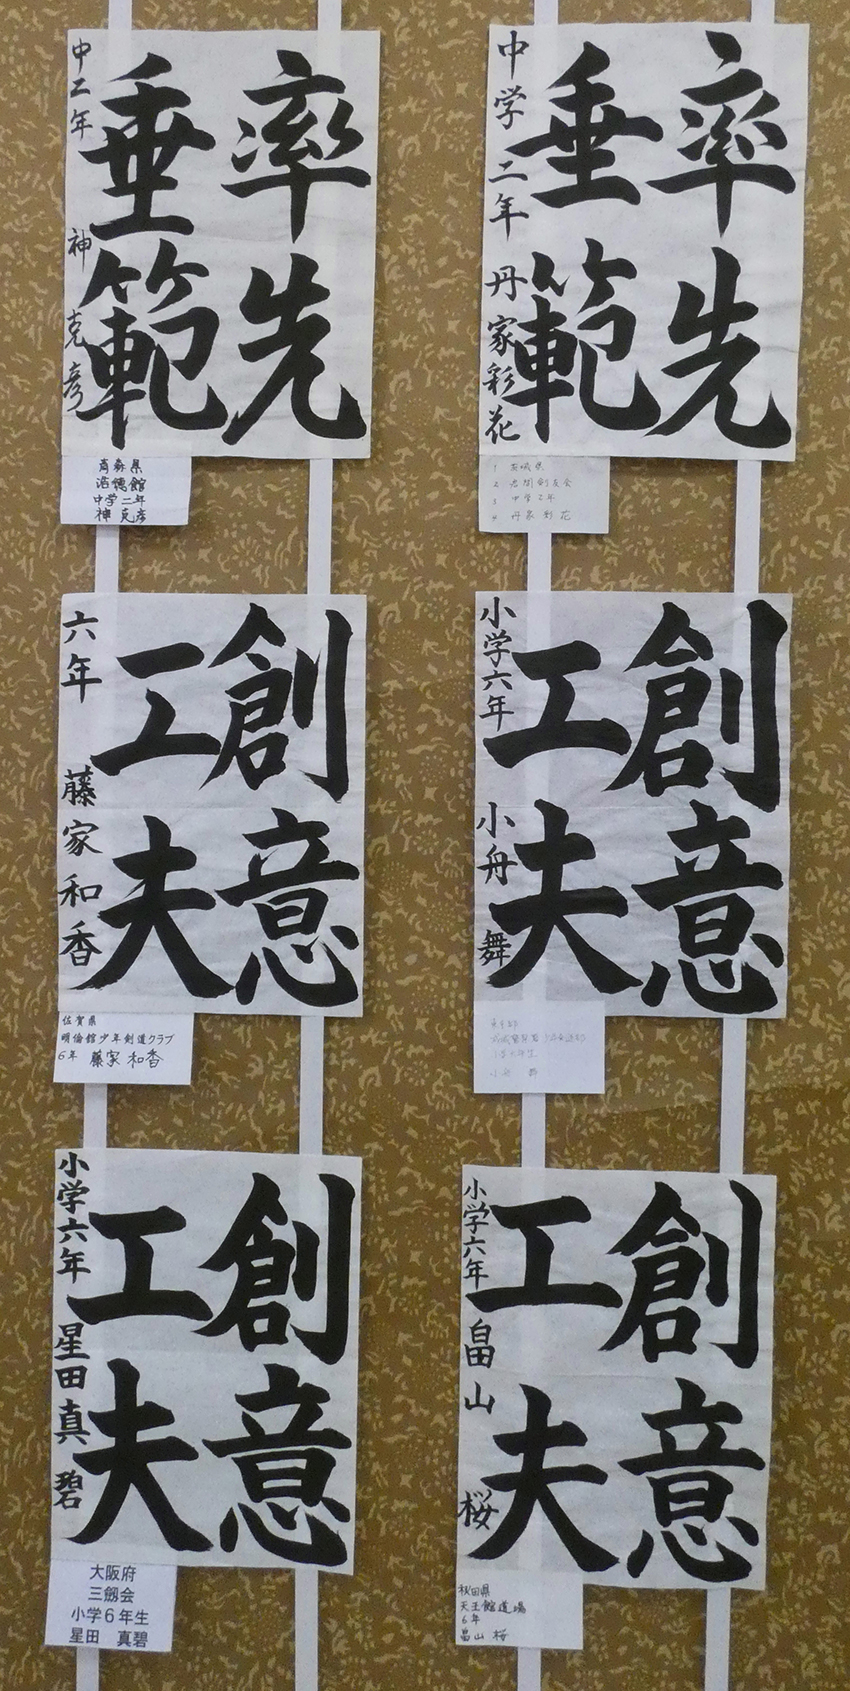 率先
垂範
中学二年 丹家彩花
1 茨城県
3 中学2年
4 丹家彩花
率先
垂範
中二年 神 克彦
青森県
中学二年
神 克彦
創意
工夫
小学六年 小舟 舞
創意
工夫
六年 藤家和香
佐賀県
明倫館少年剣道クラブ
6年 藤家 和香
創意
工夫
小学六年 畠山 桜
秋田県
天王館道場
6年
畠山 桜
創意
工夫
小学六年 星田真碧
大阪府
三劔会
小学6年生
星田 真碧